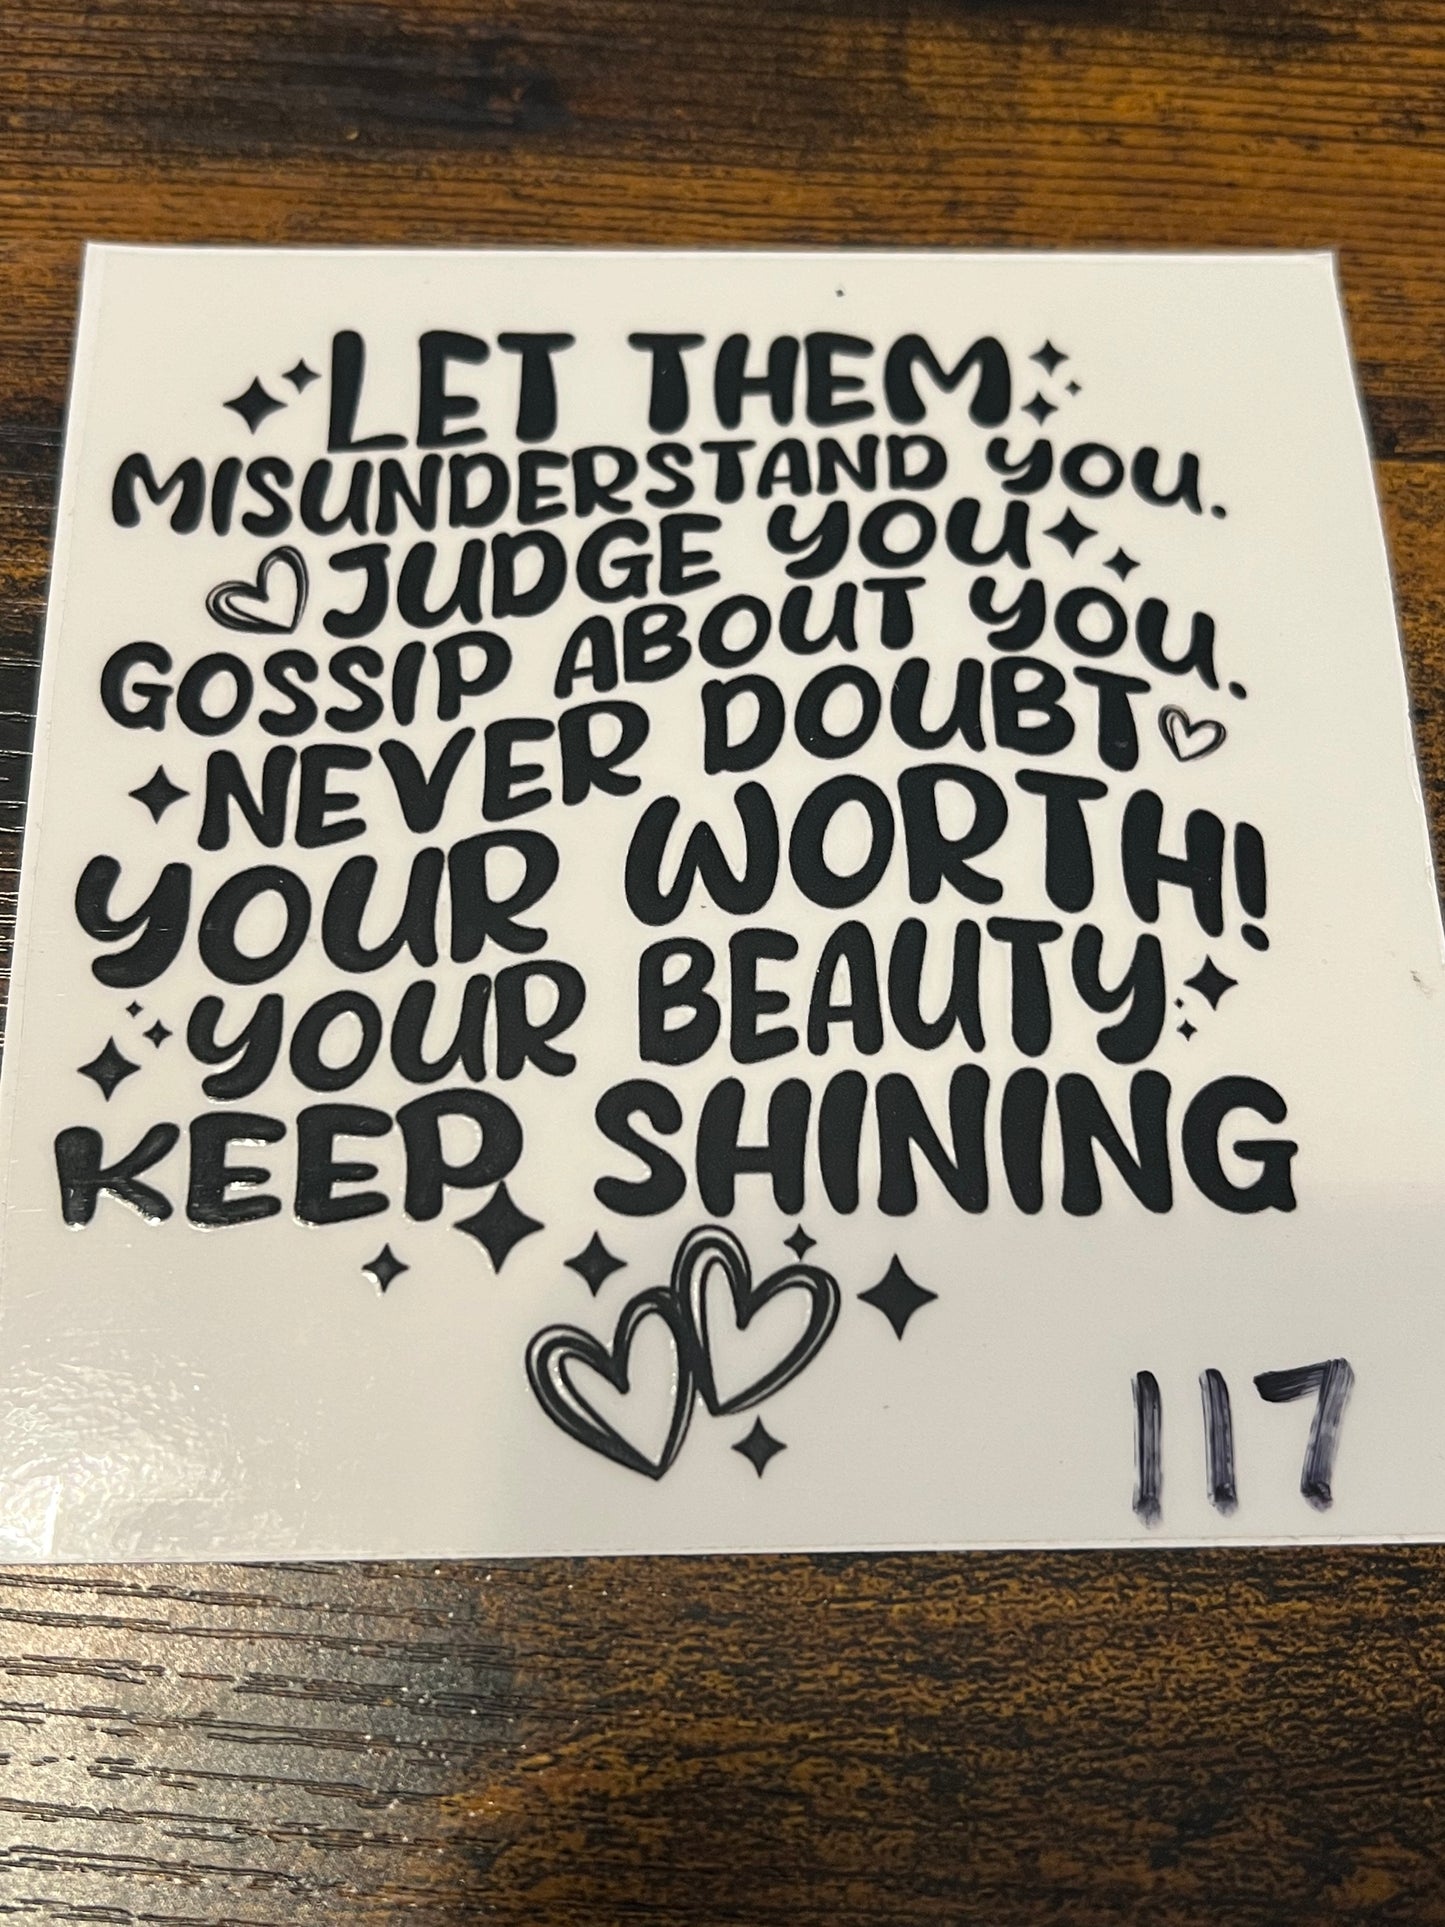 LET THEM
MISUNDERSTAND YOU.
JUDGE YOU
GOSSIP ABOUT YOU.
NEVER DOUBT
YOUR WORTH!
YOUR BEAUTY
KEEP SHINING
117